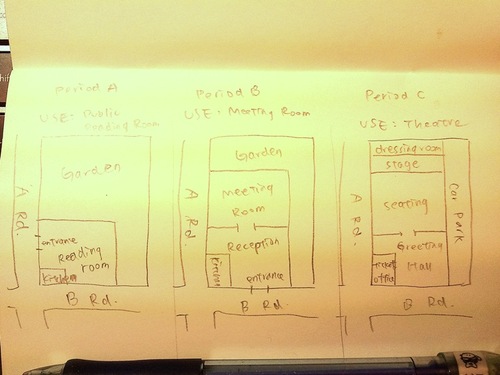 Period A
USE: Public
Reading Room
Garden
A Rd.
entrance
Reading
room
Kitchen
B Rd.
Period B
USE: Meeting Room
Garden
Meeting
Room
A Rd
Reception
Kitchen
entrance
B Rd.
Period C
USE: Theatre
dressing room
stage
seating
A Rd.
Car Park
Greeting
Hall
ticket
office
B Rd.